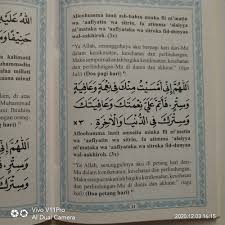 Alloohumma innii ash-bahtu minka fii ni'matin
wa 'aafiyatin wa sitrin, fa atimma 'alayya
ni'mataka wa 'aafiyataka wa sitraka fiddunyaa
wal-aakhiroh. (3x)
"Ya Allah, sesungguhnya aku berpagi hari dari-Mu
dalam kenikmatan, kesehatan, dan perlindungan.
Maka sempurnakanlah bagiku kenikmatan, kesehatan
dan perlindungan-Mu di dunia dan akhirat." (tiga
kali) (Doa pagi hari)
اَللّٰهُمَّ إِنِّي أَمْسَيْتُ مِنْكَ فِي نِعْمَةٍ وَعَافِيَةٍ
وَسِتْرٍ، فَأَتِمَّ عَلَيَّ نِعْمَتَكَ وَعَافِيَتَكَ
وَسِتْرَكَ فِي الدُّنْيَا وَالْآخِرَةِ. ×٣
Alloohumma innii amsaitu minka fii ni'matin
wa 'aafiyatin wa sitrin, fa atimma 'alayya
ni'mataka wa 'aafiyataka wa sitraka fiddunyaa
wal-aakhiroh. (3x)
"Ya Allah, sesungguhnya aku di petang hari dari-Mu
dalam kenikmatan, kesehatan, dan perlindungan.
Maka sempurnakanlah bagiku kenikmatan, kesehatan
dan perlindungan-Mu di dunia dan akhirat." (tiga
kali) (Doa petang hari)
11
vivo V11Pro
AI Dual Camera
2020.12.03 16:15